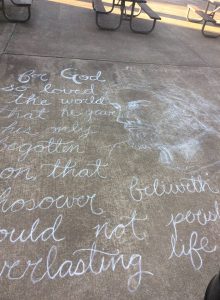 For God
so loved
the world
that he gave
his only
begotten
son that
whosower beliveth
would not perish
everlasting life